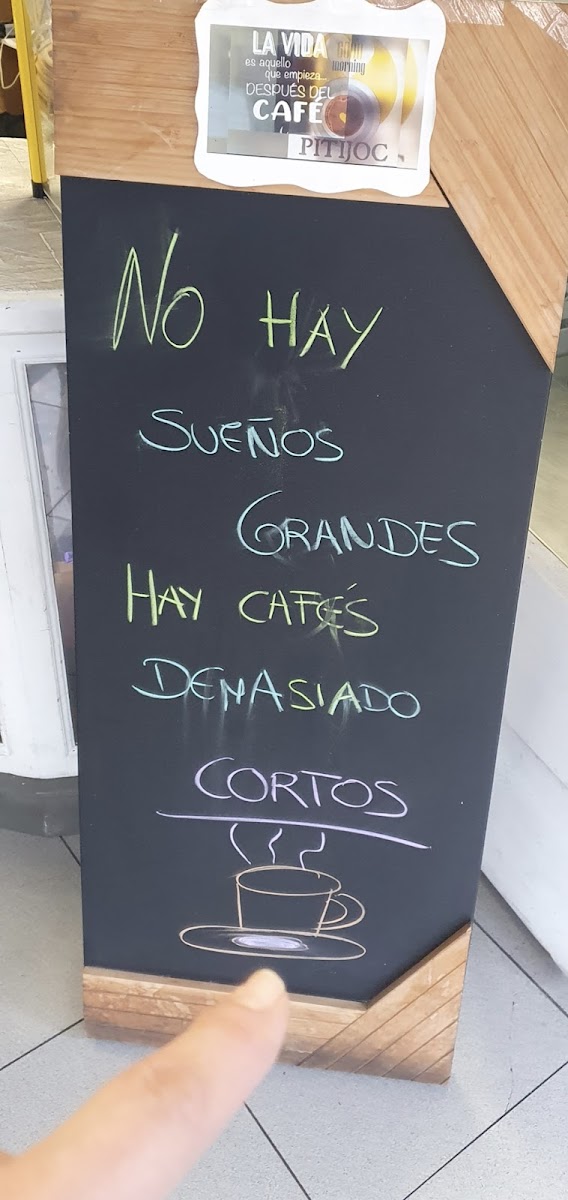 LA VIDA
es aquello
que empieza...
DESPUÉS DEL
CAFÉ
good
morning
PITIJOC
NO HAY
SUEÑOS
GRANDES
HAY CAFÉS
DEMASIADO
CORTOS